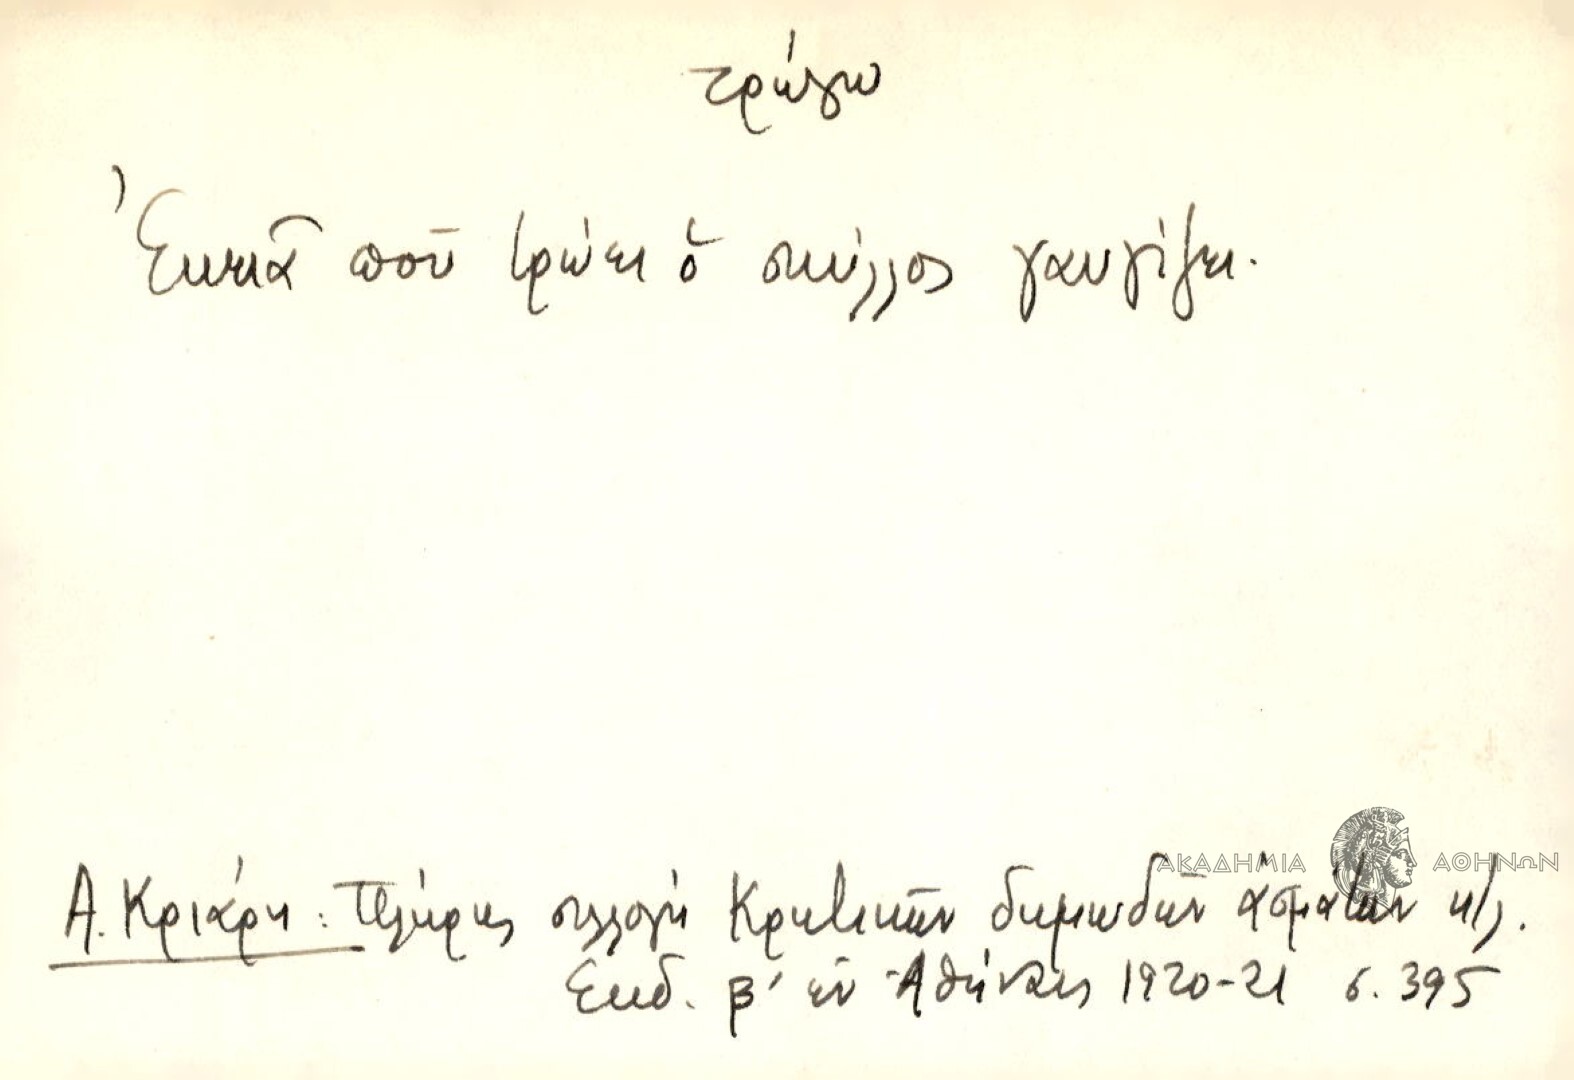 τρώγω
Ἐκειᾶ ποῦ τρώει ὁ σκύλλος γαυγίζει.
ΑΚΑΔΗΜΙΑ ΑΘΗΝΩΝ
Α. Κριάρη: Πλήρης συλλογή Κρητικῶν δημωδῶν ἀσμάτων κλ.
Ἐκδ. β' ἐν Ἀθήναις 1920-21 σ. 395